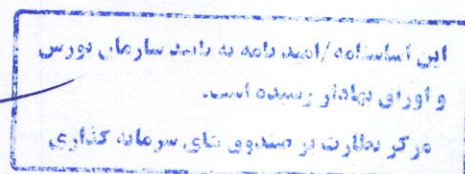 این اساسنامه/امید نامه به تایید سازمان بورس
و اوراق بهادار رسیده است.
مرکز نظارت بر صندوق های سرمایه گذاری